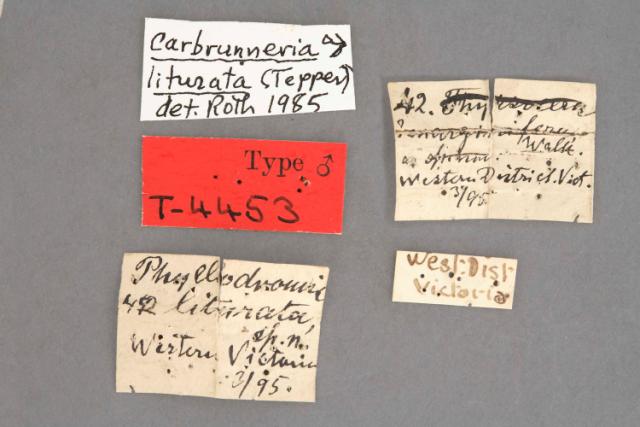 Carbrunneria ♂
liturata (Tepper)
det. Roth 1985
Type ♂
T-4453
42.
Walk.
Western District. Vict.
3/95.
Phyllodromia
42 liturata,
sp. n.
Western Victoria
3/95.
West. Dist
Victoria